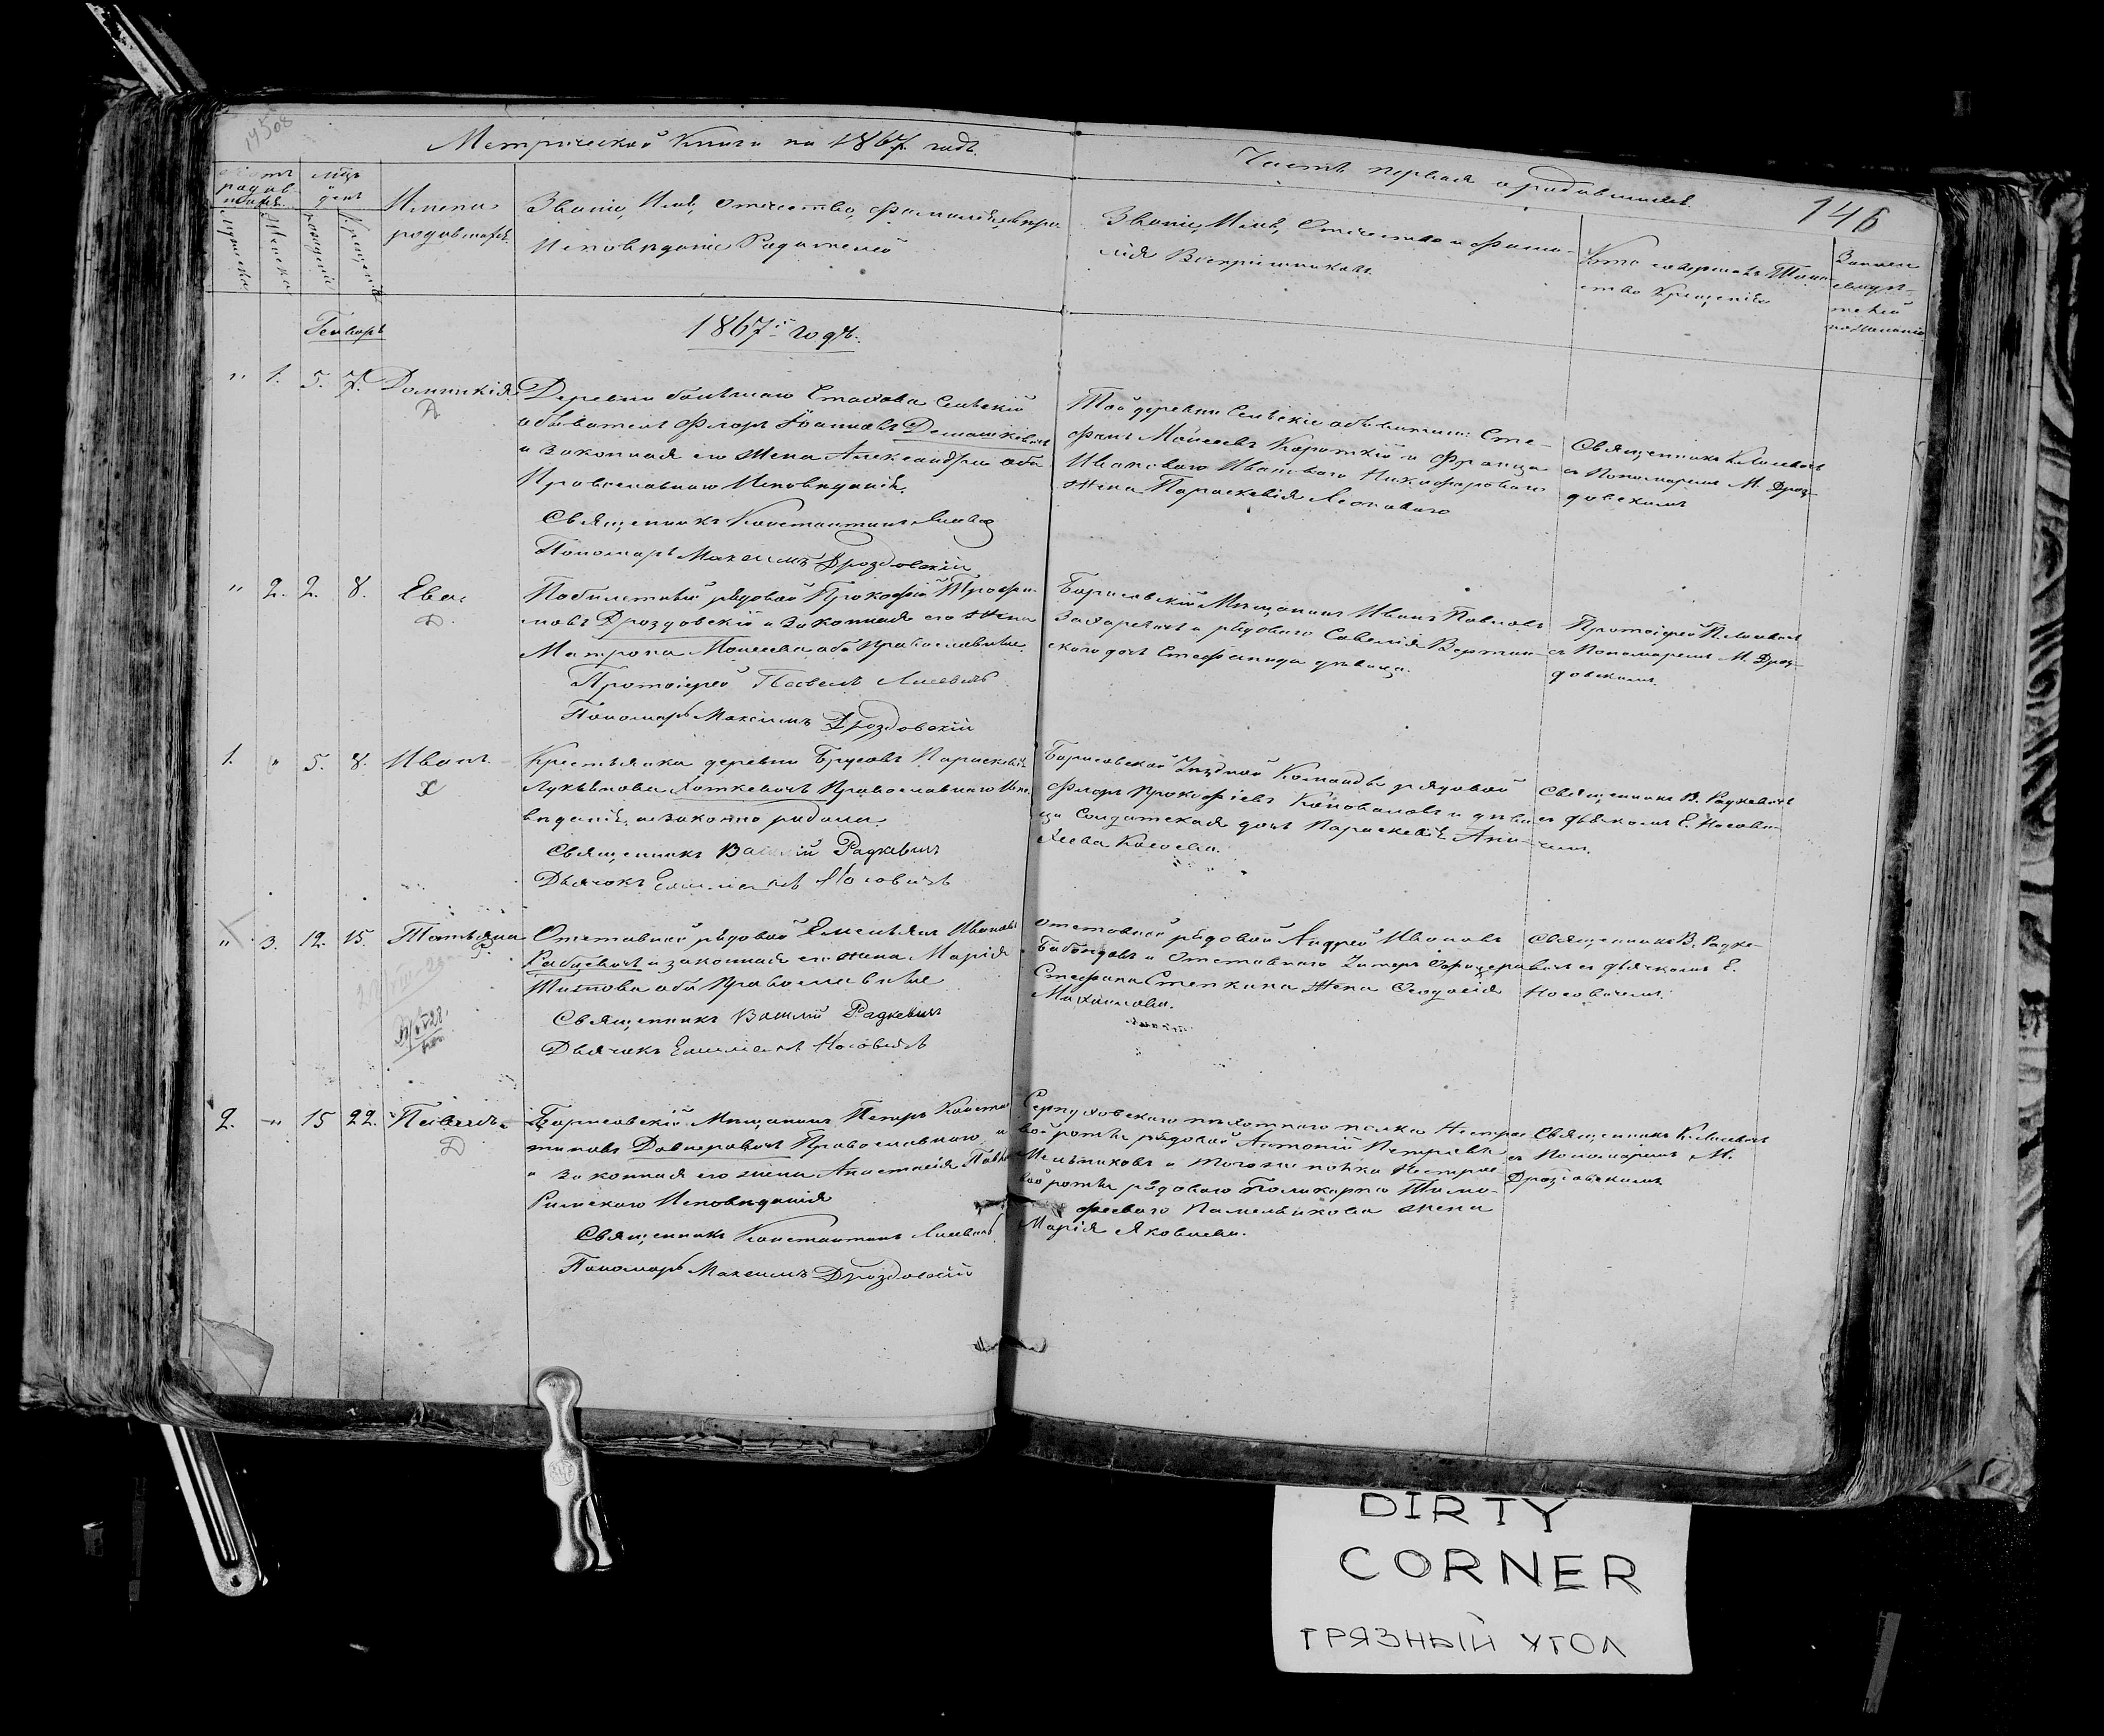 Метрической Книги на 1867 годъ.
Часть первая о родившихся.
146
родив-
шихся.
Мужеска
Женска
рожденія
Крещенія
Имена
родившихся.
Званіе, Имя, Отечество, фамилія,
Исповѣданіе Родителей
Званіе, Имя, Отечество и Фами-
лія Воспріемниковъ.
Кто совершалъ Таин-
ство Крещенія
Генварь
1867й годъ.
" 1. 5. 7. Домникія
Деревни большаго Стахова Сельскій
обыватель Флоръ Іоанновъ
и законная его жена Александра оба
Православнаго Исповѣданія.
Священникъ Константинъ Лисевичъ
Пономарь Максимъ Дроздовскій
Той деревни Сельскіе обыватели: Сте-
фанъ Моисеевъ Короткій и
Ивановаго
жена Параскевія
Священникъ К. Лисевичъ
съ Пономаремъ М. Дроз-
довскимъ
" 2. 2. 8. Ева.
Побилетный рядовой Прокофій Трофи-
мовъ Дроздовскій и законная его жена
Матрона Моисеева оба православные.
Протоіерей Павелъ Лисевичъ
Пономарь Максимъ Дроздовскій
Борисовскій Мѣщанинъ Иванъ Павловъ
Захаревичъ и рядоваго Савелія
дочь Стефанида дѣвица.
Протоіерей П. Лисевичъ
съ Пономаремъ М. Дроз-
довскимъ.
1. " 5. 8. Иванъ.
Крестьянка деревни Брусовъ Параскевія
Лукьянова Хоткевичъ Православнаго Испо-
вѣданія, незаконно родила.
Священникъ Василій Радкевичъ
Дьячокъ Емиліанъ Носовичъ
Борисовской Уѣздной Команды рядовой
Флоръ Прокофіевъ Коноваловъ и дѣви-
ца Солдатская дочь Параскевія
Священникъ В. Радкевичъ
съ дьячкомъ Е. Носови-
чемъ.
" 3. 12. 15. Татьяна
Отставной рядовой Емельянъ Ивановъ
Рабцевичъ и законная его жена Марія
оба Православные
Священникъ Василій Радкевичъ
Дьячокъ Емиліанъ Носовичъ
Отставной рядовой Андрей Ивановъ
и Отставнаго Унтеръ Офицера
Стефана Степкина жена Ѳеодосія
Михаилова.
Священникъ В. Радке-
вичъ съ дьячкомъ Е.
Носовичемъ.
2. " 15 22. Павелъ
Борисовскій Мѣщанинъ Петръ Констан-
тиновъ Православнаго
и законная его жена Анастасія
Римскаго Исповѣданія
Священникъ Константинъ Лисевичъ
Пономарь Максимъ Дроздовскій
Серпуховскаго пѣхотнаго полка Нестрое-
вой роты рядовой Антоній Петровъ
Мельниковъ и того же полка Нестрое-
вой роты рядоваго Поликарпа Тимо-
фееваго жена
Марія Яковлева.
Священникъ К. Лисевичъ
съ Пономаремъ М.
Дроздовскимъ
DIRTY
CORNER
ГРЯЗНЫЙ УГОЛ